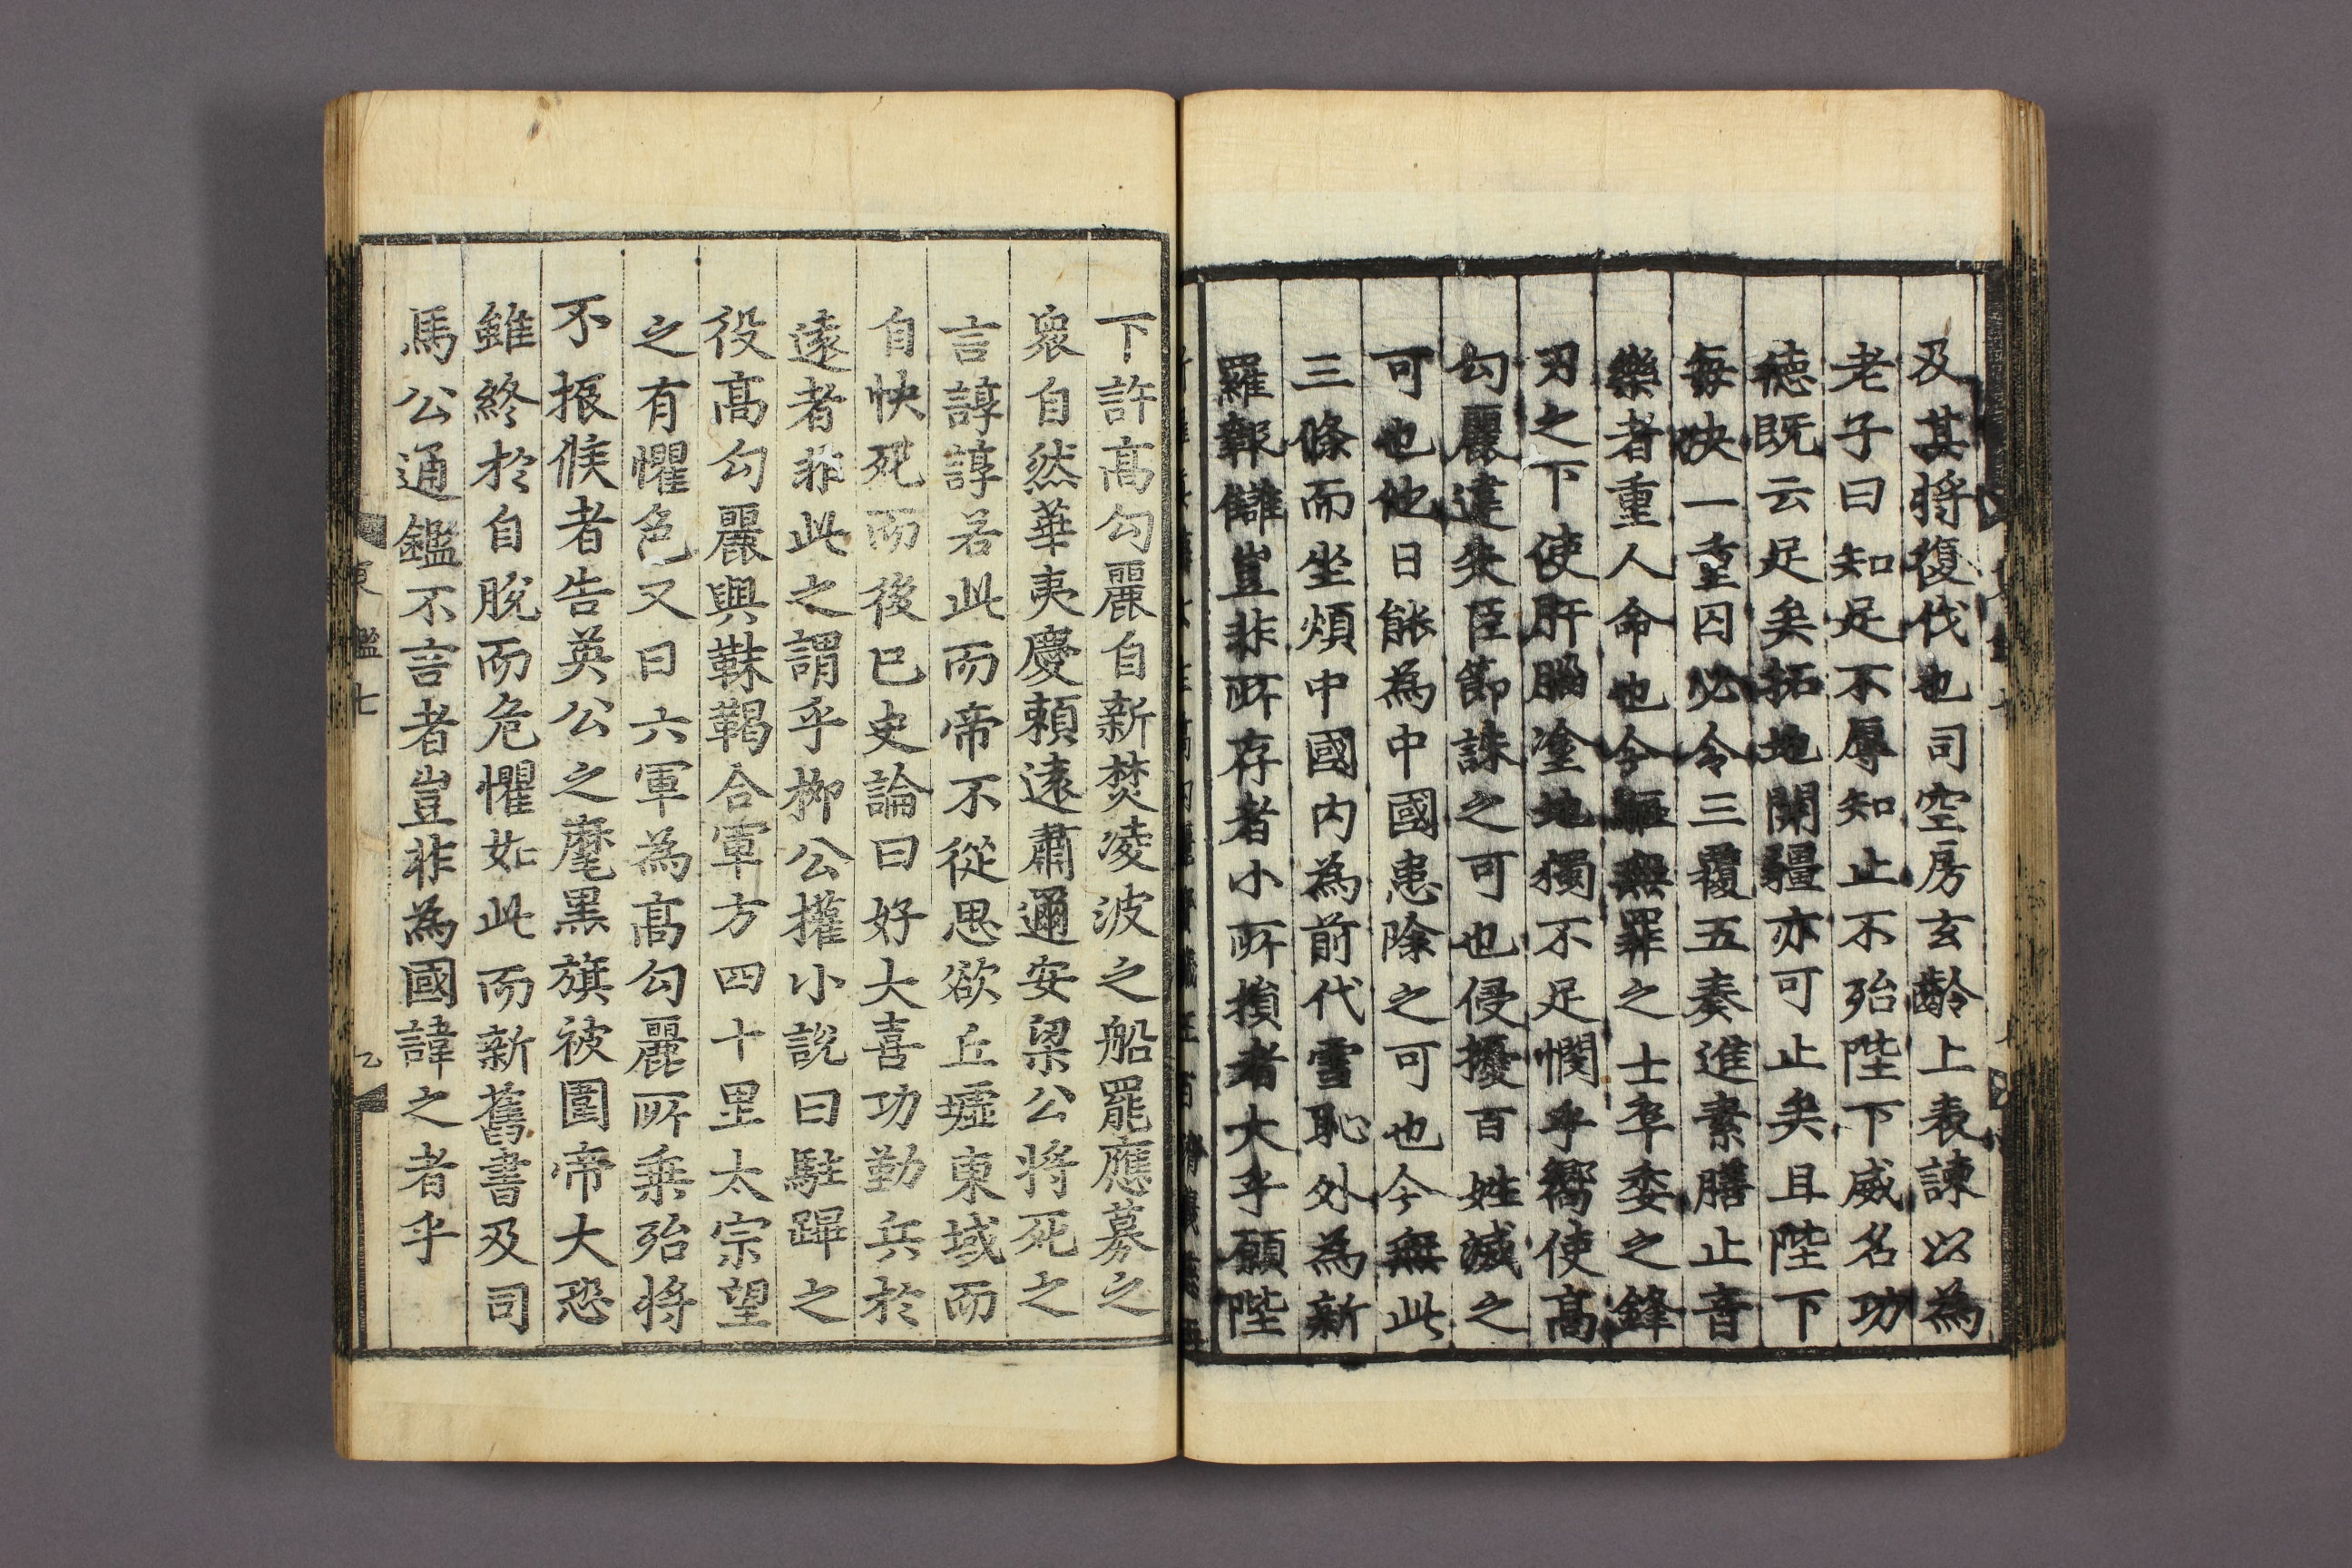 及其将復伐也司空房玄齡上表諌以為
老子曰知足不辱知止不殆陛下威名功
徳既云足矣拓地開疆亦可止矣且陛下
毎决一重囚必令三覆五奏進素膳止音
樂者重人命也今驅無罪之士卒委之鋒
刃之下使肝腦塗地獨不足憫乎嚮使髙
勾麗違失臣節誅之可也侵擾百姓滅之
可也他日能為中國患除之可也今無此
三條而坐煩中國内為前代雪恥外為新
羅報讎豈非所存者小所損者大乎願陛
下許髙勾麗自新焚凌波之船罷應募之
衆自然華夷慶頼遠肅邇安梁公将死之
言諄諄若此而帝不從思欲丘墟東域而
自快死而後已史論曰好大喜功勤兵於
遠者非此之謂乎柳公權小說曰駐蹕之
役髙勾麗與靺鞨合軍方四十里太宗望
之有懼色又曰六軍為髙勾麗所乗殆将
不振候者告英公之麾黒旗被圍帝大恐
雖終於自脫而危懼如此而新舊書及司
馬公通鑑不言者豈非為國諱之者乎
東鑑七